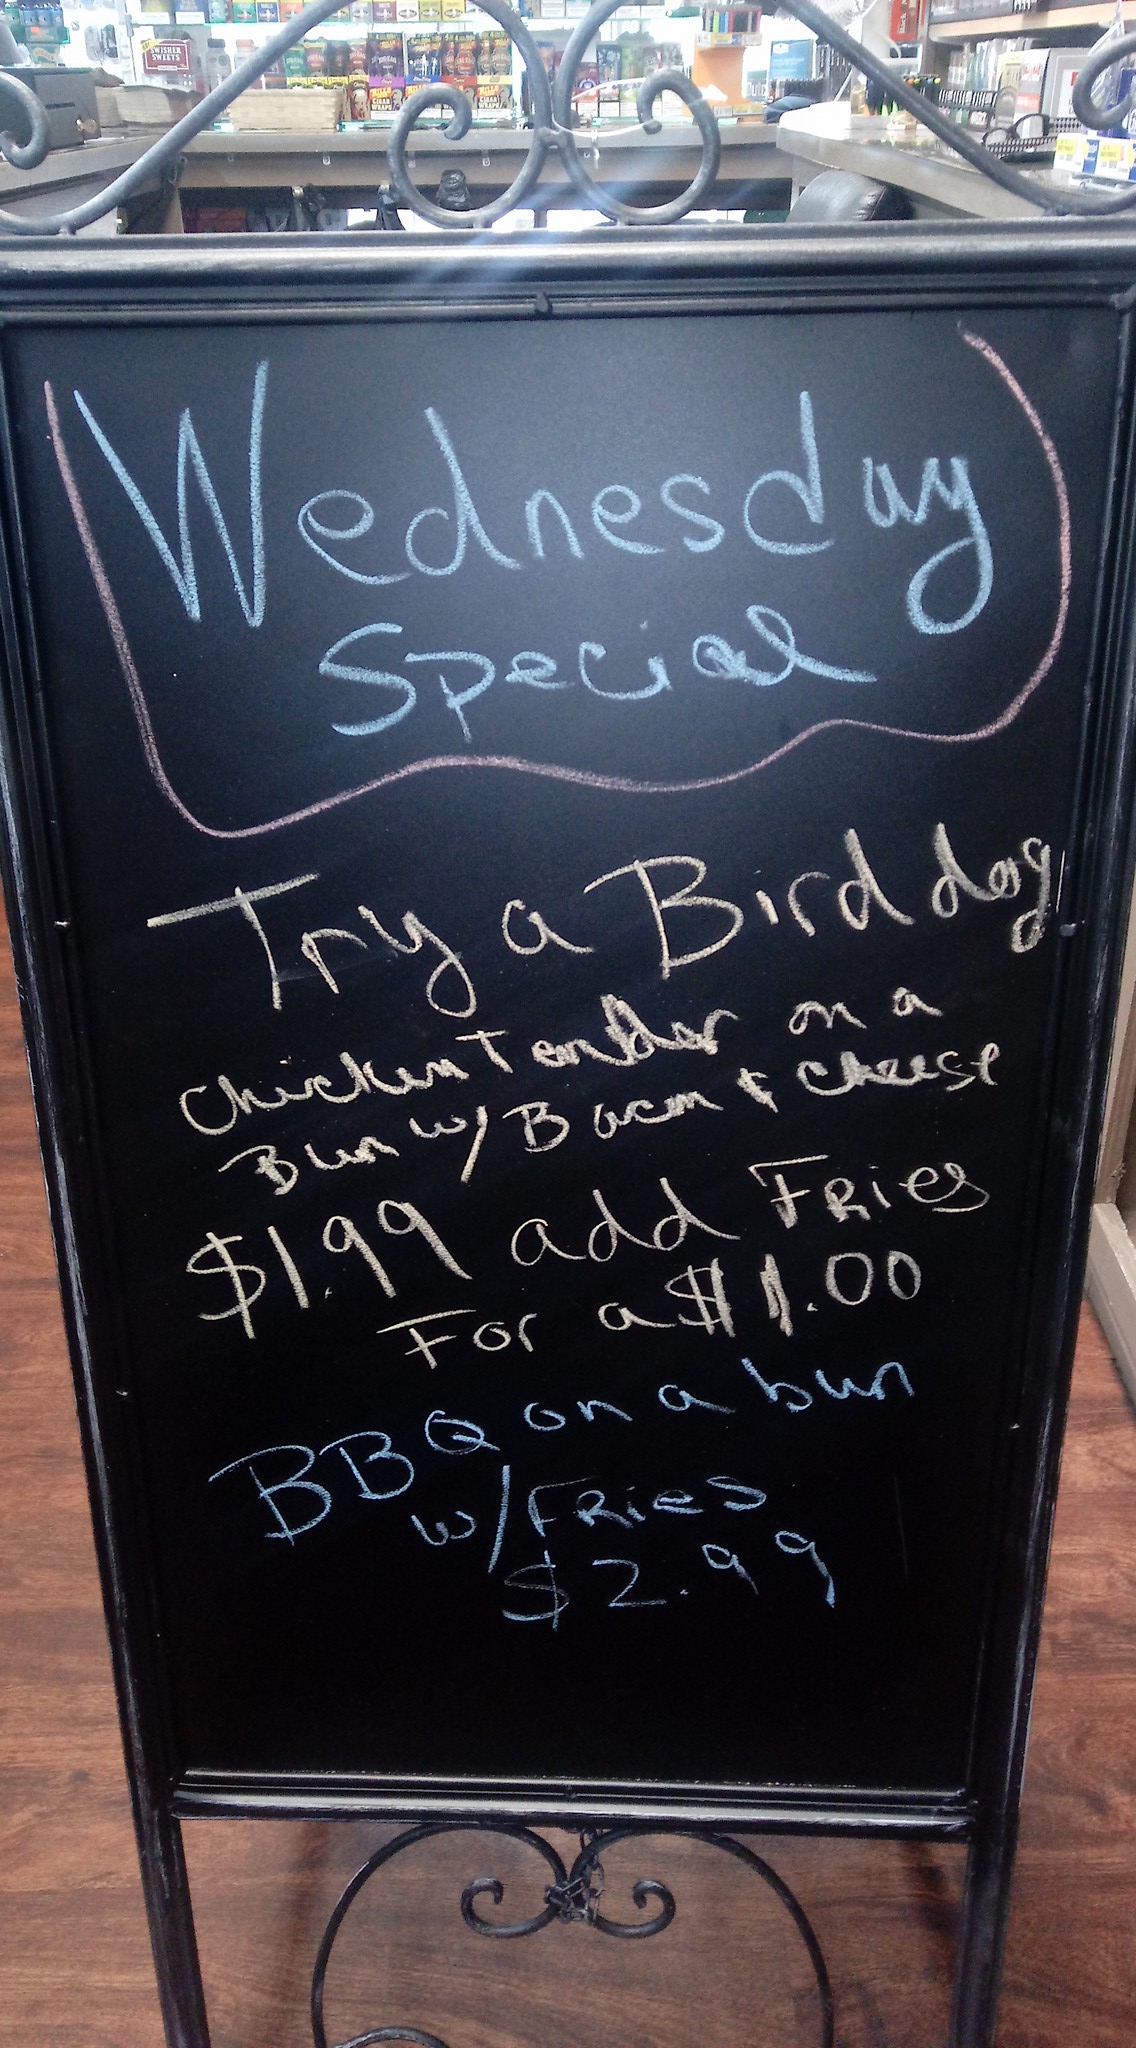 SWISHER
SWEETS
CIGAR
WRAPS
Wednesday
Special
Try a Bird dog
Chicken Tender on a
Bun w/ Bacon & Cheese
$1.99 add Fries
For a $1.00
BBQ on a bun
w/ Fries
$2.99